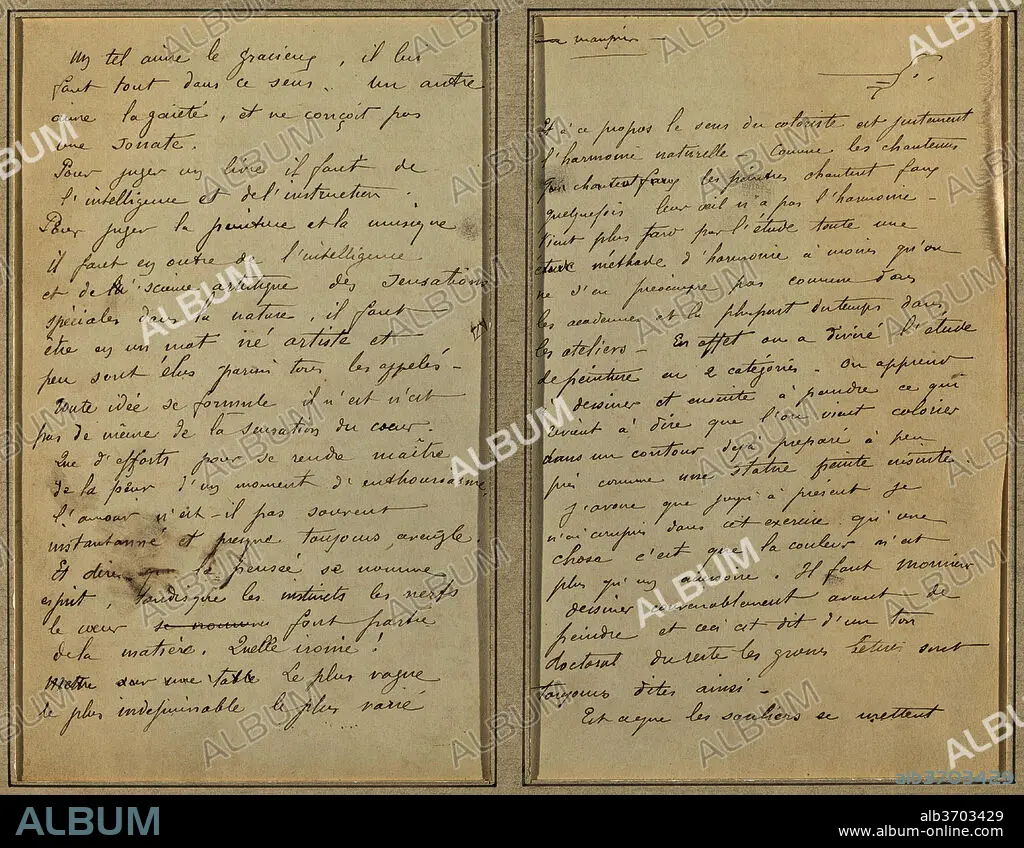 Un tel aime le gracieux, il lui
faut tout dans ce sens. Un autre
aime la gaieté, et ne conçoit pas
une sonate.
Pour juger un livre il faut de
l'intelligence et de l'instruction.
Pour juger la peinture et la musique
il faut en outre de l'intelligence
et de la science artistique des sensations
spéciales dans la nature, il faut
être en un mot né artiste et
peu sont élus parmi tous les appelés -
Toute idée se formule il n'est n'est
pas de même de la sensation du cœur.
Que d'efforts pour se rendre maître
de la peur d'un moment d'enthousiasme,
l'amour n'est-il pas souvent
instantanné et presque toujours aveugle.
Et dire que la pensée se nomme
esprit, tandisque les instincts les nerfs
le cœur se nomme font partie
de la matière. Quelle ironie!
Mettre sur une table Le plus vague
le plus indéfinissable le plus varié
Et à ce propos le sens du coloriste est justement
l'harmonie naturelle - Comme les chanteurs
qui chantent faux les peintres chantent faux
quelquefois leur œil n'a pas l'harmonie -
Vient plus tard par l'étude toute une
étude méthode d'harmonie à moins qu'on
ne s'en préoccupe pas comme dans
les académies et la plupart du temps dans
les ateliers - En effet on a divisé l'étude
de peinture en 2 catégories. On apprend
à dessiner et ensuite à peindre ce qui
revient à dire que l'on vient colorier
dans un contour déjà préparé à peu
près comme une statue peinte ensuite.
J'avoue que jusqu'à présent je
n'ai compris dans cet exercice qu'une
chose c'est que la couleur n'est
plus qu'un accessoire. Il faut Monsieur
dessiner convenablement avant de
peindre et ceci est dit d'un ton
doctoral du reste les grandes bêtises sont
toujours dites ainsi -
Est ce que les souliers se mettent
ALBUM
alb3703429
alb3703429
www.album-online.com